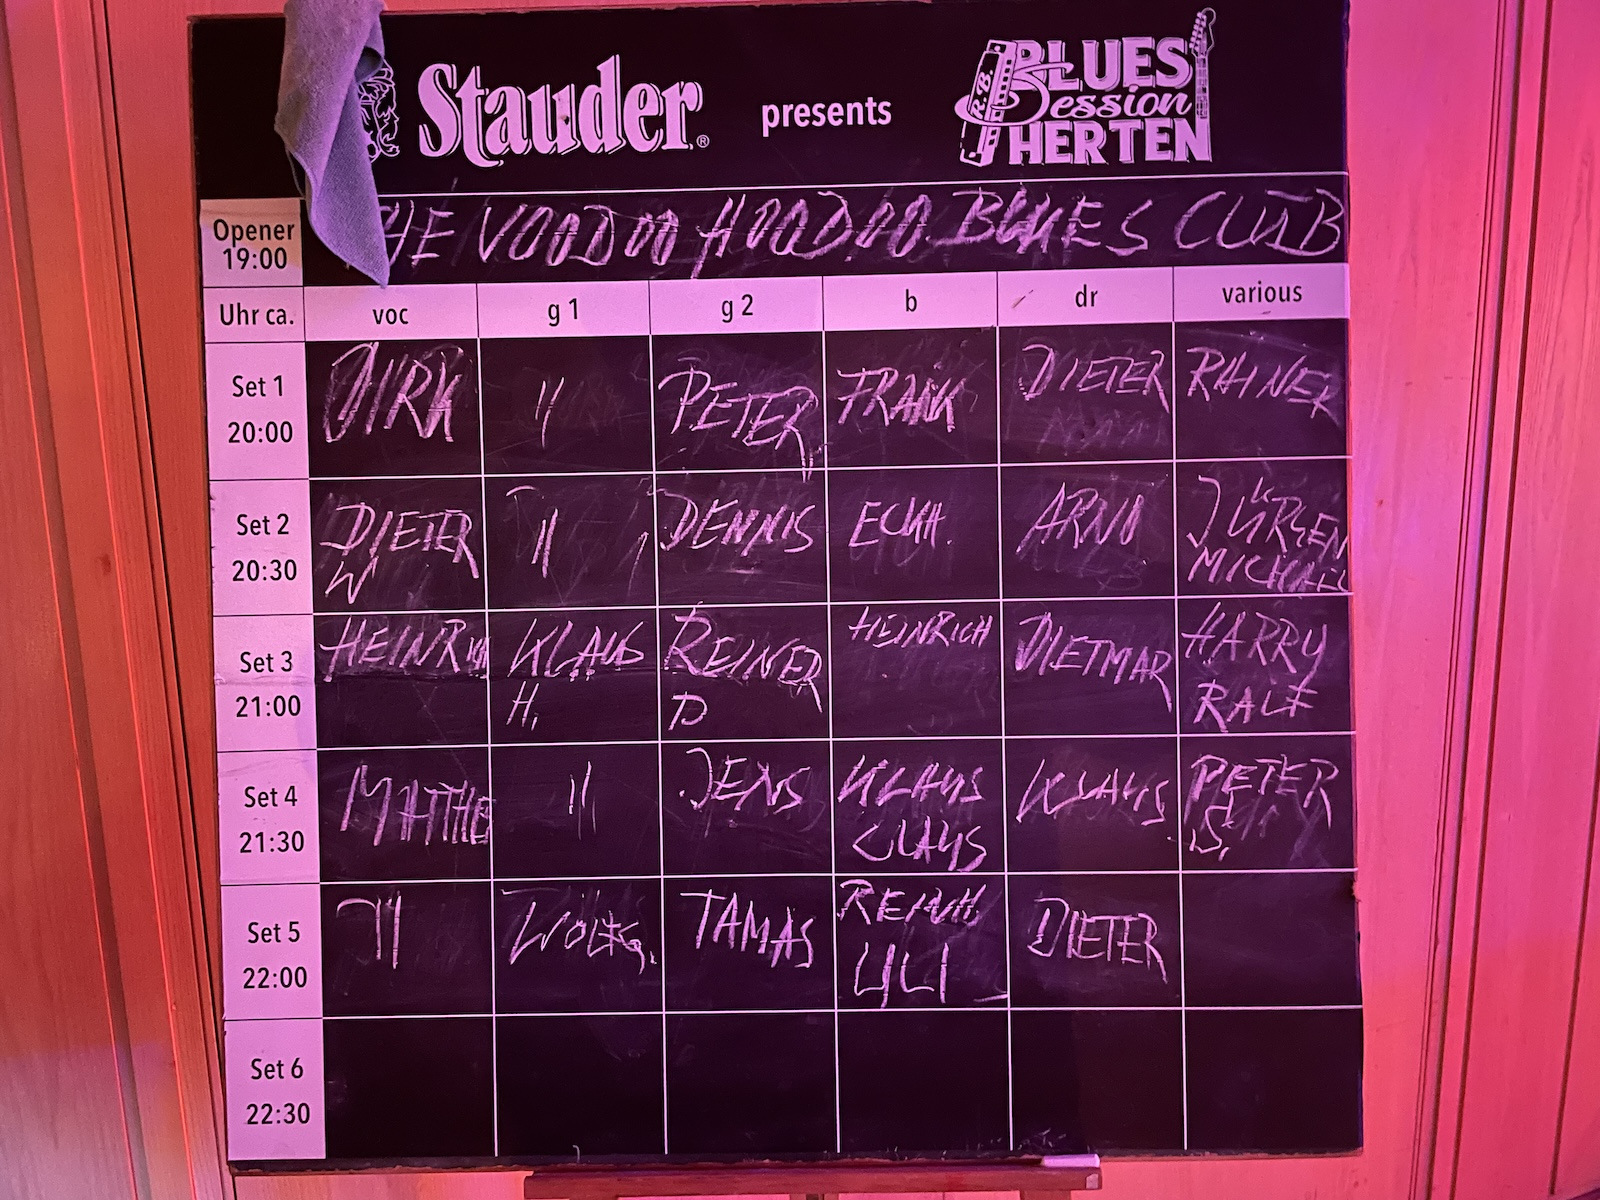 Stauder® presents R.B. BLUES Session HERTEN
Opener 19:00 THE VOODOO HOODOO BLUES CLUB
Uhr ca. voc g 1 g 2 b dr various
Set 1 DIRK " PETER FRANK DIETER RAINER
20:00
Set 2 DIETER " DENNIS ECKH. ARNO JÜRGEN
20:30 W MICHAEL
Set 3 HEINRICH KLAUS REINER HEINRICH DIETMAR HARRY
21:00 H. D RALF
Set 4 MATTHE " JENS KLAUS KLAUS PETER
21:30 CLAUS S.
Set 5 WOLFG. TAMAS REINH. DIETER
22:00 ULI
Set 6
22:30